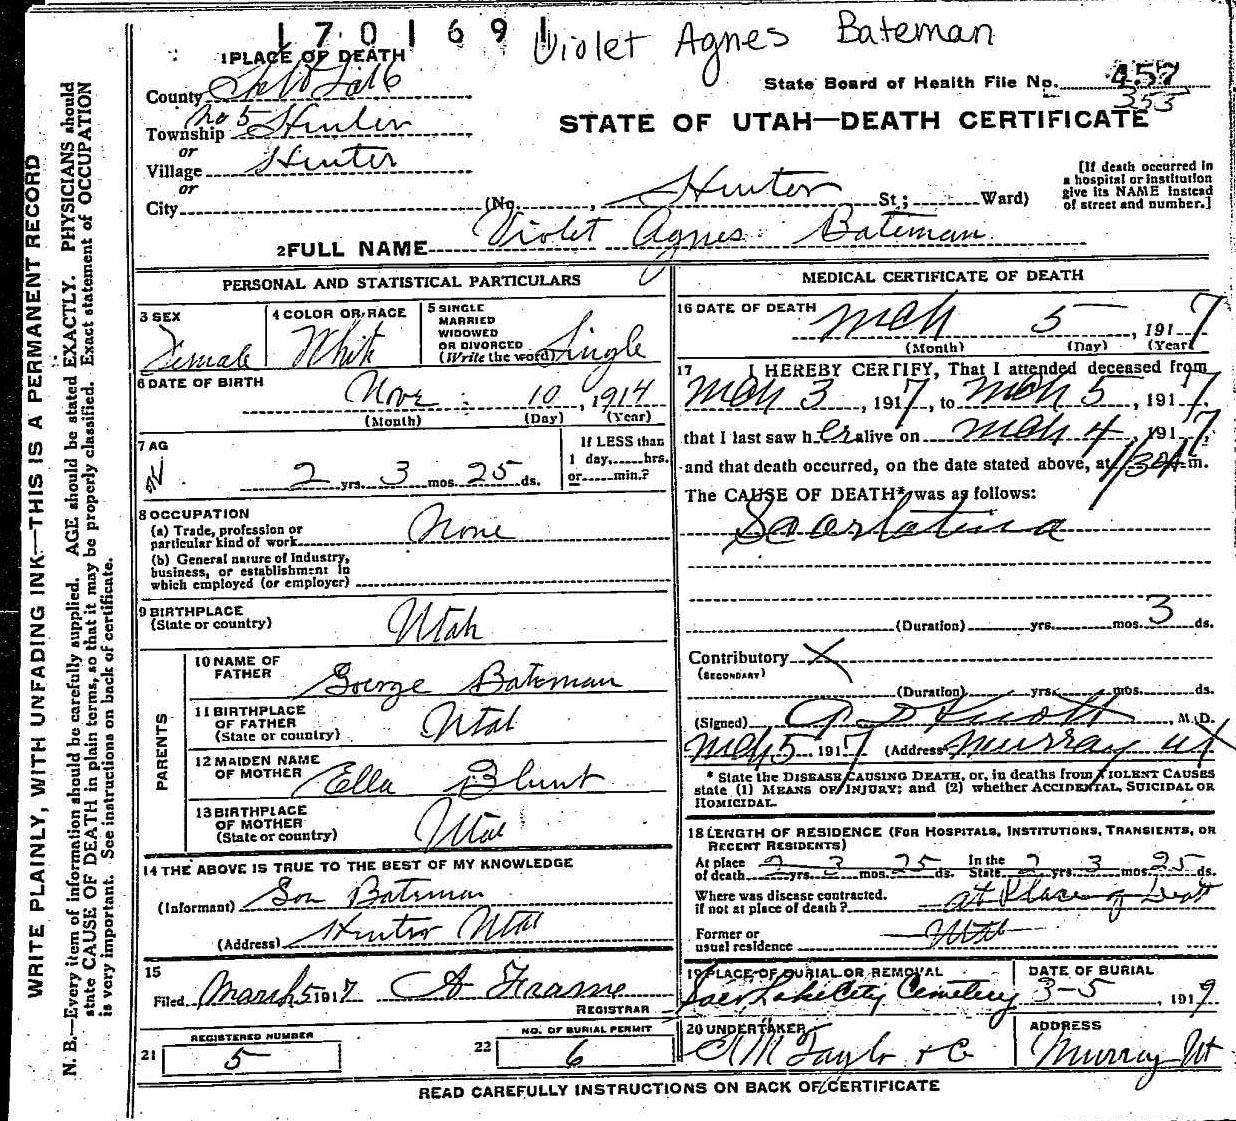 1701691 Violet Agnes Bateman
1 PLACE OF DEATH
County Salt Lake
State Board of Health File No. 457
353
Township No 5 Hunter
STATE OF UTAH—DEATH CERTIFICATE
or
Village Hunter
or
City (No. , Hunter St; Ward)
[If death occurred in a hospital or institution give its NAME instead of street and number.]
2 FULL NAME Violet Agnes Bateman
PERSONAL AND STATISTICAL PARTICULARS
3 SEX Female
4 COLOR OR RACE White
5 SINGLE MARRIED WIDOWED OR DIVORCED (Write the word) Single
6 DATE OF BIRTH
Nov. 10, 1914
(Month) (Day) (Year)
7 AG
2 yrs. 3 mos. 25 ds.
If LESS than 1 day, hrs. or min.?
8 OCCUPATION
(a) Trade, profession or particular kind of work None
(b) General nature of Industry, business, or establishment in which employed (or employer)
9 BIRTHPLACE
(State or country) Utah
PARENTS
10 NAME OF FATHER George Bateman
11 BIRTHPLACE OF FATHER (State or country) Utah
12 MAIDEN NAME OF MOTHER Ella Blunt
13 BIRTHPLACE OF MOTHER (State or country) Utah
14 THE ABOVE IS TRUE TO THE BEST OF MY KNOWLEDGE
(Informant) Bateman
(Address) Hunter Utah
15
Filed March 5 1917 A Frame
REGISTRAR
21 REGISTERED NUMBER 5
22 NO. OF BURIAL PERMIT 6
MEDICAL CERTIFICATE OF DEATH
16 DATE OF DEATH
Mch 5, 1917
(Month) (Day) (Year)
17 I HEREBY CERTIFY, That I attended deceased from
Mch 3, 1917, to Mch 5, 1917,
that I last saw her alive on Mch 4, 1917,
and that death occurred, on the date stated above, at 1/30A m.
The CAUSE OF DEATH* was as follows:
Scarlatina
(Duration) yrs. mos. 3 ds.
Contributory X
(SECONDARY)
(Duration) yrs. mos. ds.
(Signed) M.D.
Mch 5 1917 (Address Murray Ut X
* State the DISEASE CAUSING DEATH, or, in deaths from VIOLENT CAUSES
state (1) MEANS OF INJURY; and (2) whether ACCIDENTAL, SUICIDAL OR
HOMICIDAL.
18 LENGTH OF RESIDENCE (FOR HOSPITALS, INSTITUTIONS, TRANSIENTS, OR
RECENT RESIDENTS)
At place of death 2 yrs. 3 mos. 25 ds. In the State 2 yrs. 3 mos. 25 ds.
Where was disease contracted, if not at place of death? at Place of Deat
Former or usual residence Utah
19 PLACE OF BURIAL OR REMOVAL
Salt Lake City Cemetery
DATE OF BURIAL
3-5, 1917
20 UNDERTAKER
Taylor & Co
ADDRESS
Murray Ut
READ CAREFULLY INSTRUCTIONS ON BACK OF CERTIFICATE
WRITE PLAINLY, WITH UNFADING INK—THIS IS A PERMANENT RECORD
N. B.—Every item of information should be carefully supplied. AGE should be stated EXACTLY. PHYSICIANS should
state CAUSE OF DEATH in plain terms, so that it may be properly classified. Exact statement of OCCUPATION
is very important. See instructions on back of certificate.